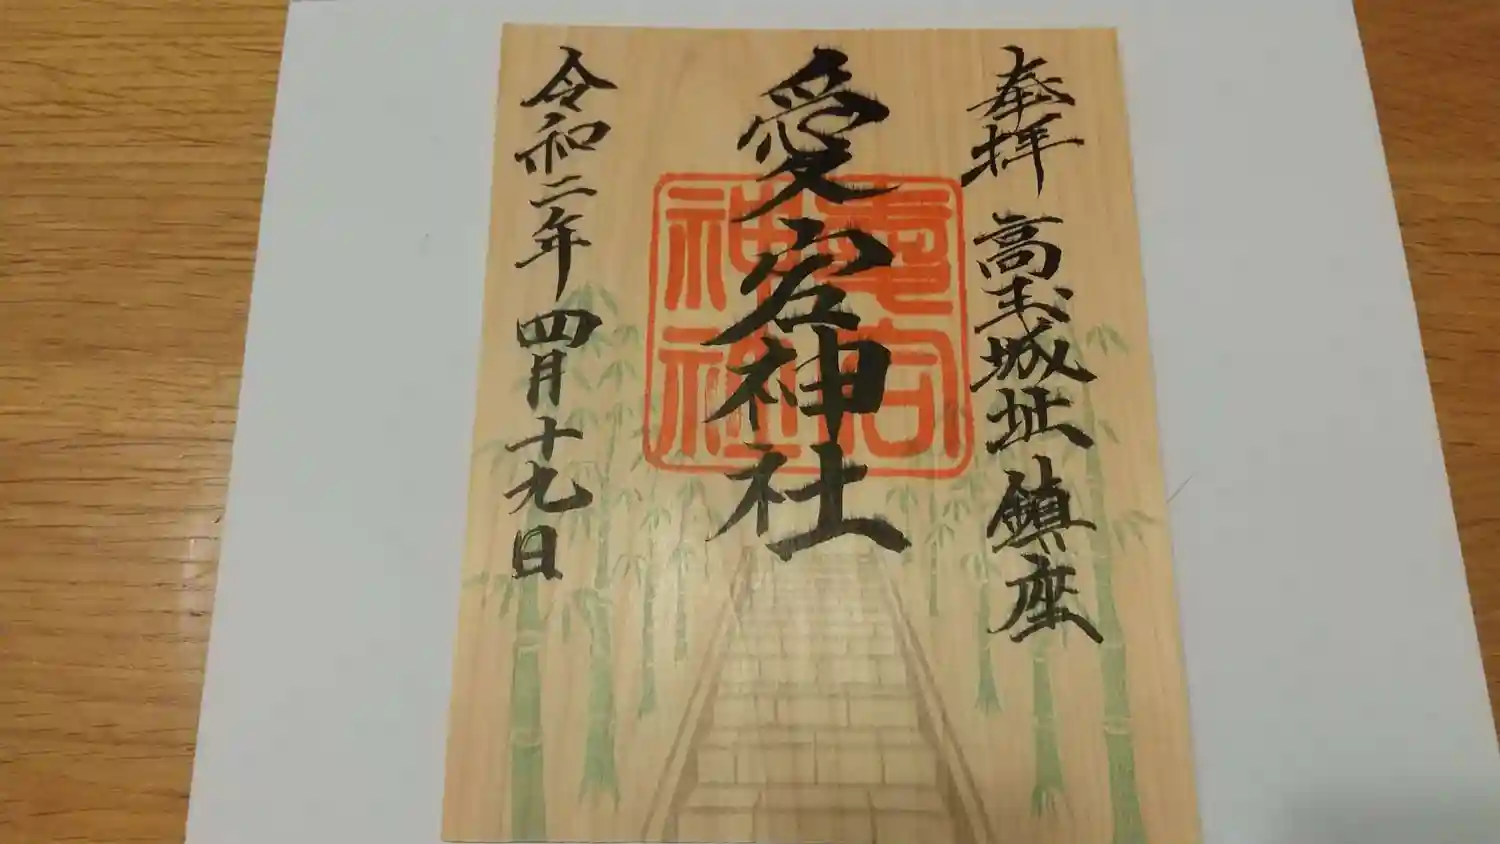 奉拝 高玉城址 鎮座
愛宕神社
愛宕
神社
令和二年四月十九日